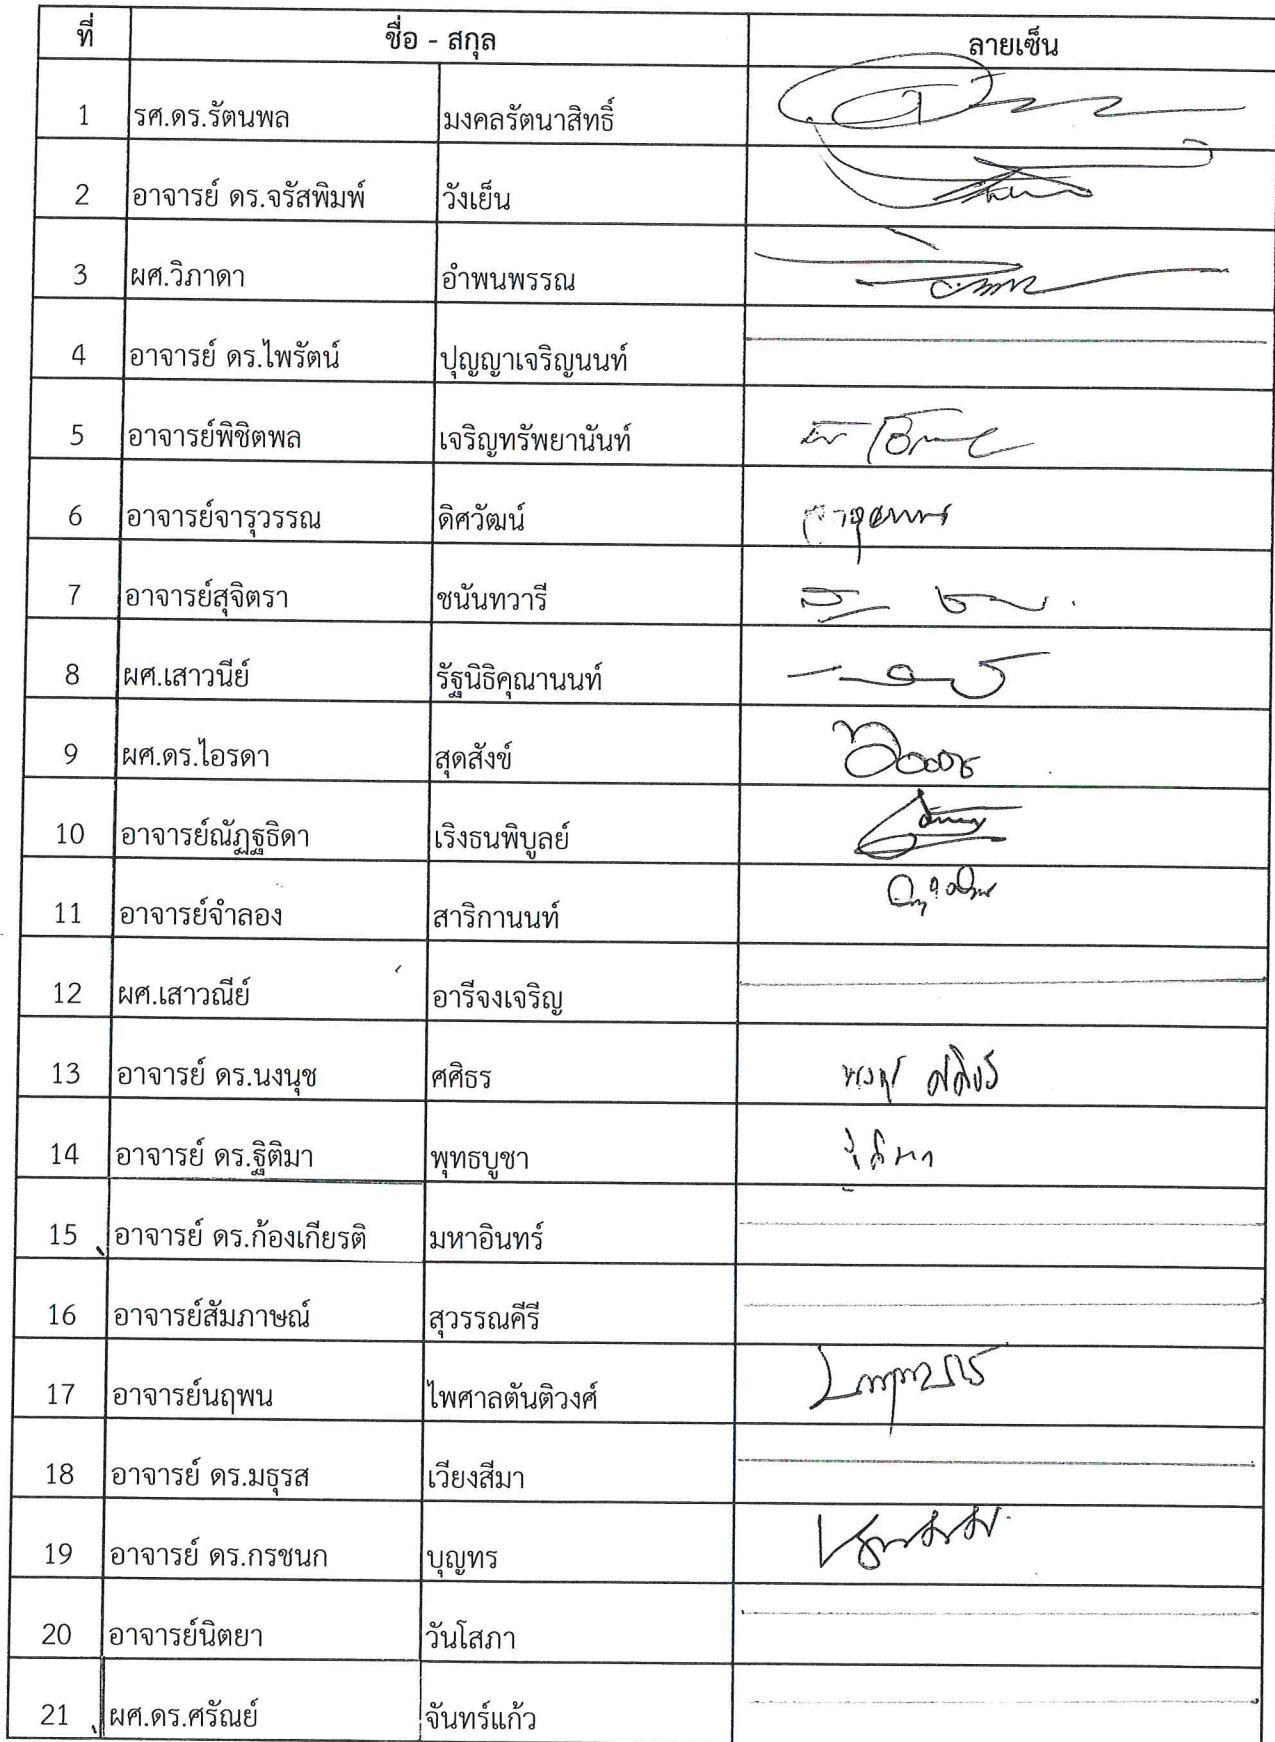 ที่ ชื่อ - สกุล ลายเซ็น
1 รศ.ดร.รัตนพล มงคลรัตนาสิทธิ์
2 อาจารย์ ดร.จรัสพิมพ์ วังเย็น
3 ผศ.วิภาดา อำพนพรรณ
4 อาจารย์ ดร.ไพรัตน์ ปุญญาเจริญนนท์
5 อาจารย์พิชิตพล เจริญทรัพยานันท์
6 อาจารย์จารุวรรณ ดิศวัฒน์
7 อาจารย์สุจิตรา ชนันทวารี
8 ผศ.เสาวนีย์ รัฐนิธิคุณานนท์
9 ผศ.ดร.ไอรดา สุดสังข์
10 อาจารย์ณัฏฐธิดา เริงธนพิบูลย์
11 อาจารย์จำลอง สาริกานนท์
12 ผศ.เสาวณีย์ อารีจงเจริญ
13 อาจารย์ ดร.นงนุช ศศิธร นงนุช ศศิธร
14 อาจารย์ ดร.ฐิติมา พุทธบูชา ฐิติมา
15 อาจารย์ ดร.ก้องเกียรติ มหาอินทร์
16 อาจารย์สัมภาษณ์ สุวรรณคีรี
17 อาจารย์นฤพน ไพศาลตันติวงศ์
18 อาจารย์ ดร.มธุรส เวียงสีมา
19 อาจารย์ ดร.กรชนก บุญทร
20 อาจารย์นิตยา วันโสภา
21 ผศ.ดร.ศรัณย์ จันทร์แก้ว